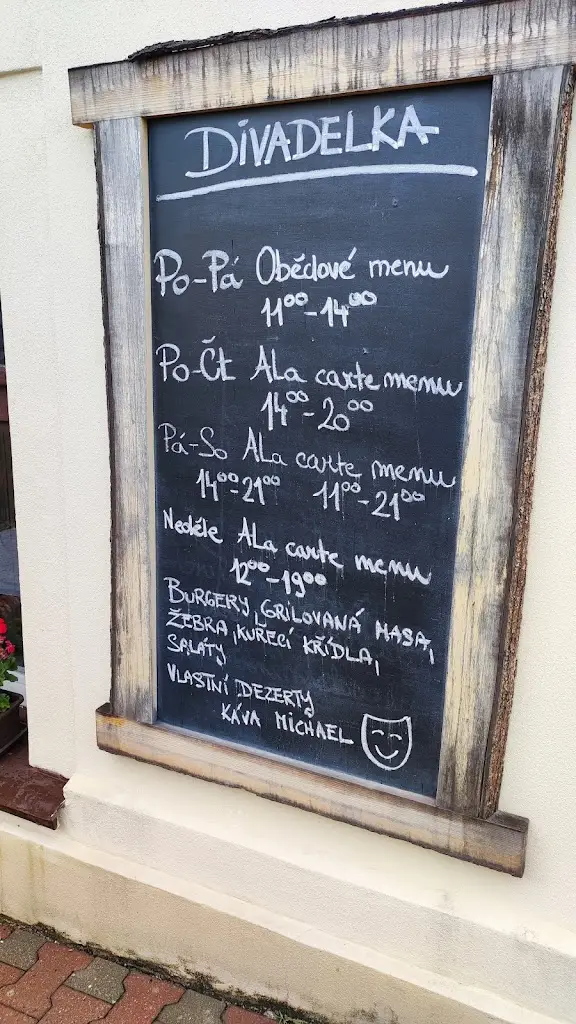 DIVADELKA
Po-Pá Obědové menu
11⁰⁰-14⁰⁰
Po-Čt ALa carte menu
14⁰⁰-20⁰⁰
Pá-So ALa carte menu
14⁰⁰-21⁰⁰ 11⁰⁰-21⁰⁰
Neděle ALa carte menu
12⁰⁰-19⁰⁰
BURGERY, GRILOVANÁ MASA,
ŽEBRA, KUŘECÍ KŘÍDLA,
SALÁTY
VLASTNÍ DEZERTY
KÁVA MICHAEL